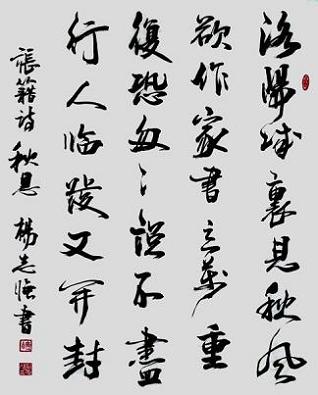 洛陽城裏見秋風
欲作家書意萬重
復恐匆々說不盡
行人臨發又開封
張籍詩 秋思 楊志書